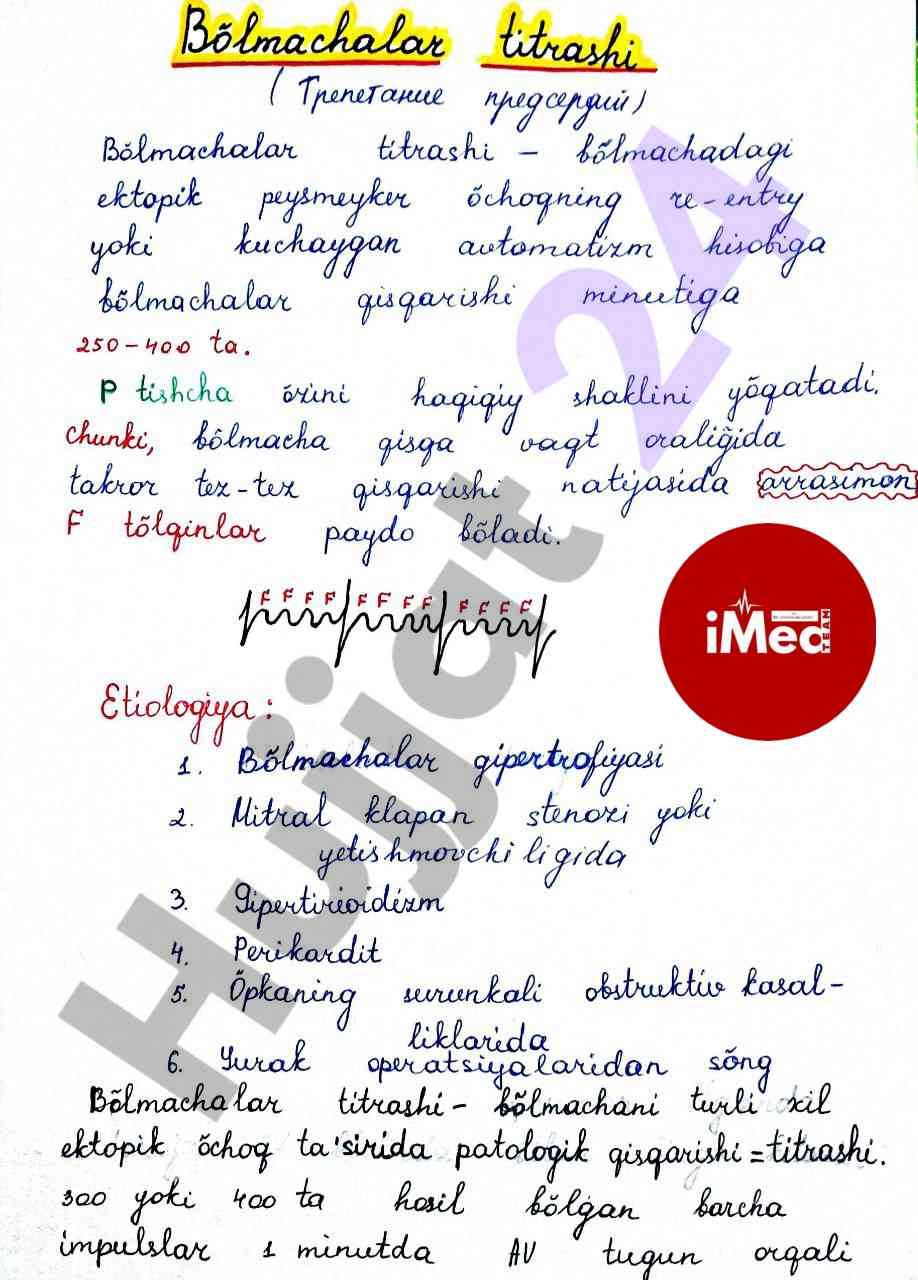 Bõlmachalar titrashi
(Трепетание предсердий)
Bõlmachalar titrashi – bõlmachadagi
ektopik peysmeyker õchoqning re-entry
yoki kuchaygan avtomatizm hisobiga
bõlmachalar qisqarishi minutiga
250-400 ta.
P tishcha õzini haqiqiy shaklini yõqatadi.
Chunki, bõlmacha qisqa vaqt oralig̃ida
takror tez-tez qisqarishi natijasida arrasimon
F tõlqinlar paydo bõladi.
F F F F F F F F F F F F
iMed
TEAM
Etiologiya:
1. Bõlmachalar gipertrofiyasi
2. Mitral klapan stenozi yoki
yetishmovchiligida
3. Gipertirioidizm
4. Perikardit
5. Õpkaning surunkali obstruktiv kasal-
liklarida
6. Yurak operatsiyalaridan sõng
Bõlmachalar titrashi – bõlmachani turli xil
ektopik õchoq ta'sirida patologik qisqarishi = titrashi.
300 yoki 400 ta hosil bõlgan barcha
impulslar 1 minutda AV tugun orqali
Hujjat 24